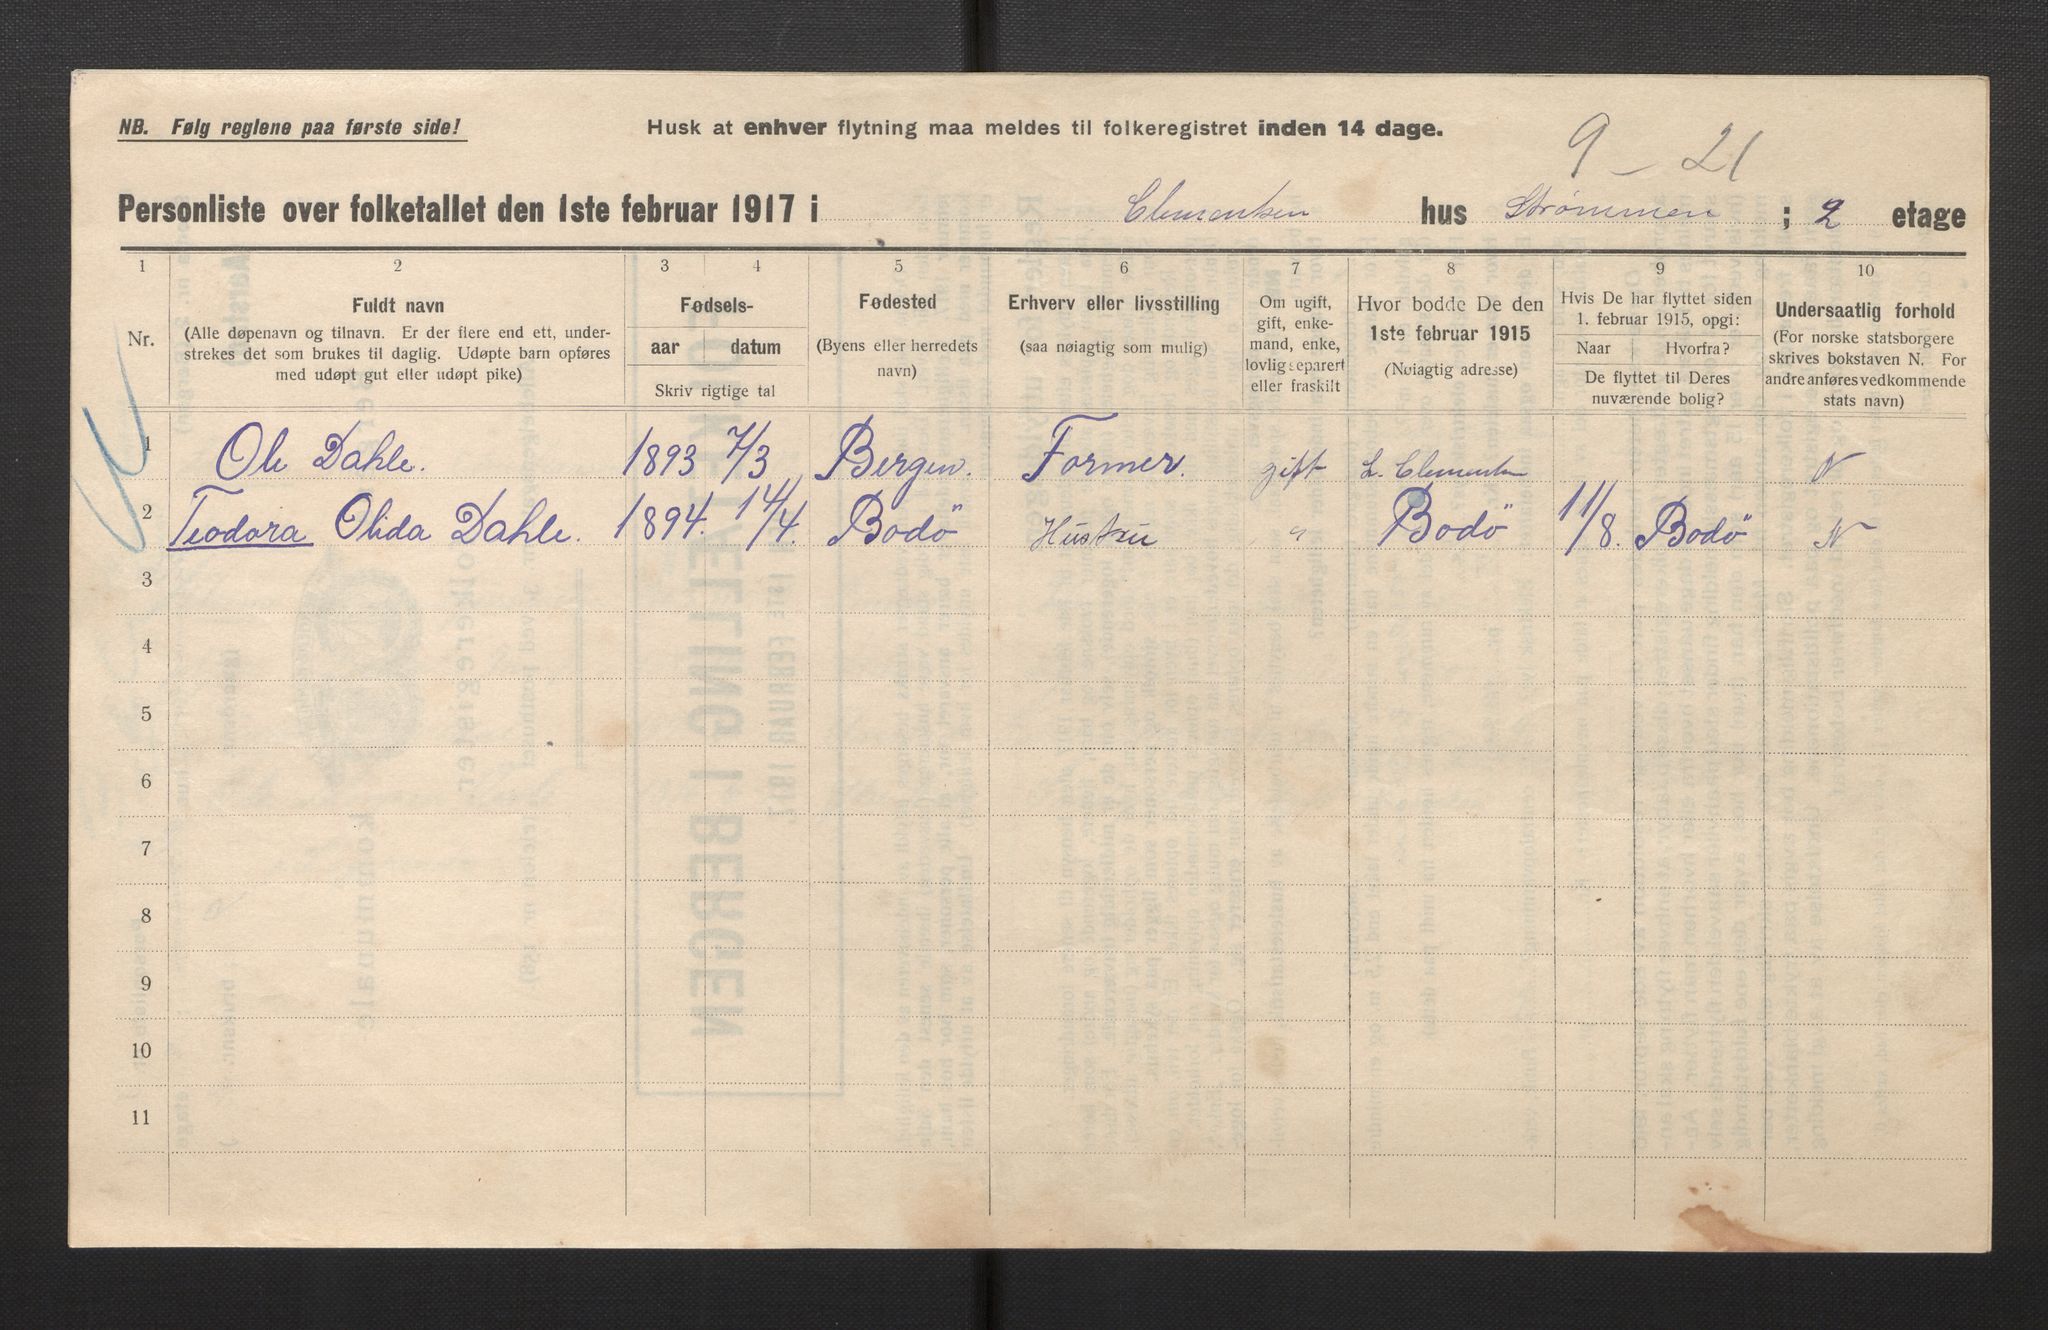 NB. Følg reglene paa første side!
Husk at enhver flytning maa meldes til folkeregistret inden 14 dage.
9 - 21
Personliste over folketallet den 1ste februar 1917 i Clementsen hus Strømmen ; 2 etage
1 2 3 4 5 6 7 8 9 10
Nr.
Fuldt navn
(Alle døpenavn og tilnavn. Er der flere end ett, under-
strekes det som brukes til daglig. Udøpte barn opføres
med udøpt gut eller udøpt pike)
Fødsels-
aar datum
Skriv rigtige tal
Fødested
(Byens eller herredets
navn)
Erhverv eller livsstilling
(saa nøiagtig som mulig)
Om ugift,
gift, enke-
mand, enke,
lovlig separert
eller fraskilt
Hvor bodde De den
1ste februar 1915
(Nøiagtig adresse)
Hvis De har flyttet siden
1. februar 1915, opgi:
Naar Hvorfra?
De flyttet til Deres
nuværende bolig?
Undersaatlig forhold
(For norske statsborgere
skrives bokstaven N. For
andre anføres vedkommende
stats navn)
1 Ole Dahle. 1893 7/3 Bergen. Former. gift L. Clementsen N
2 Teodora Olida Dahle. 1894. 14/4. Bodö Hustru " Bodö 11/8. Bodö N
3
4
5
6
7
8
9
10
11